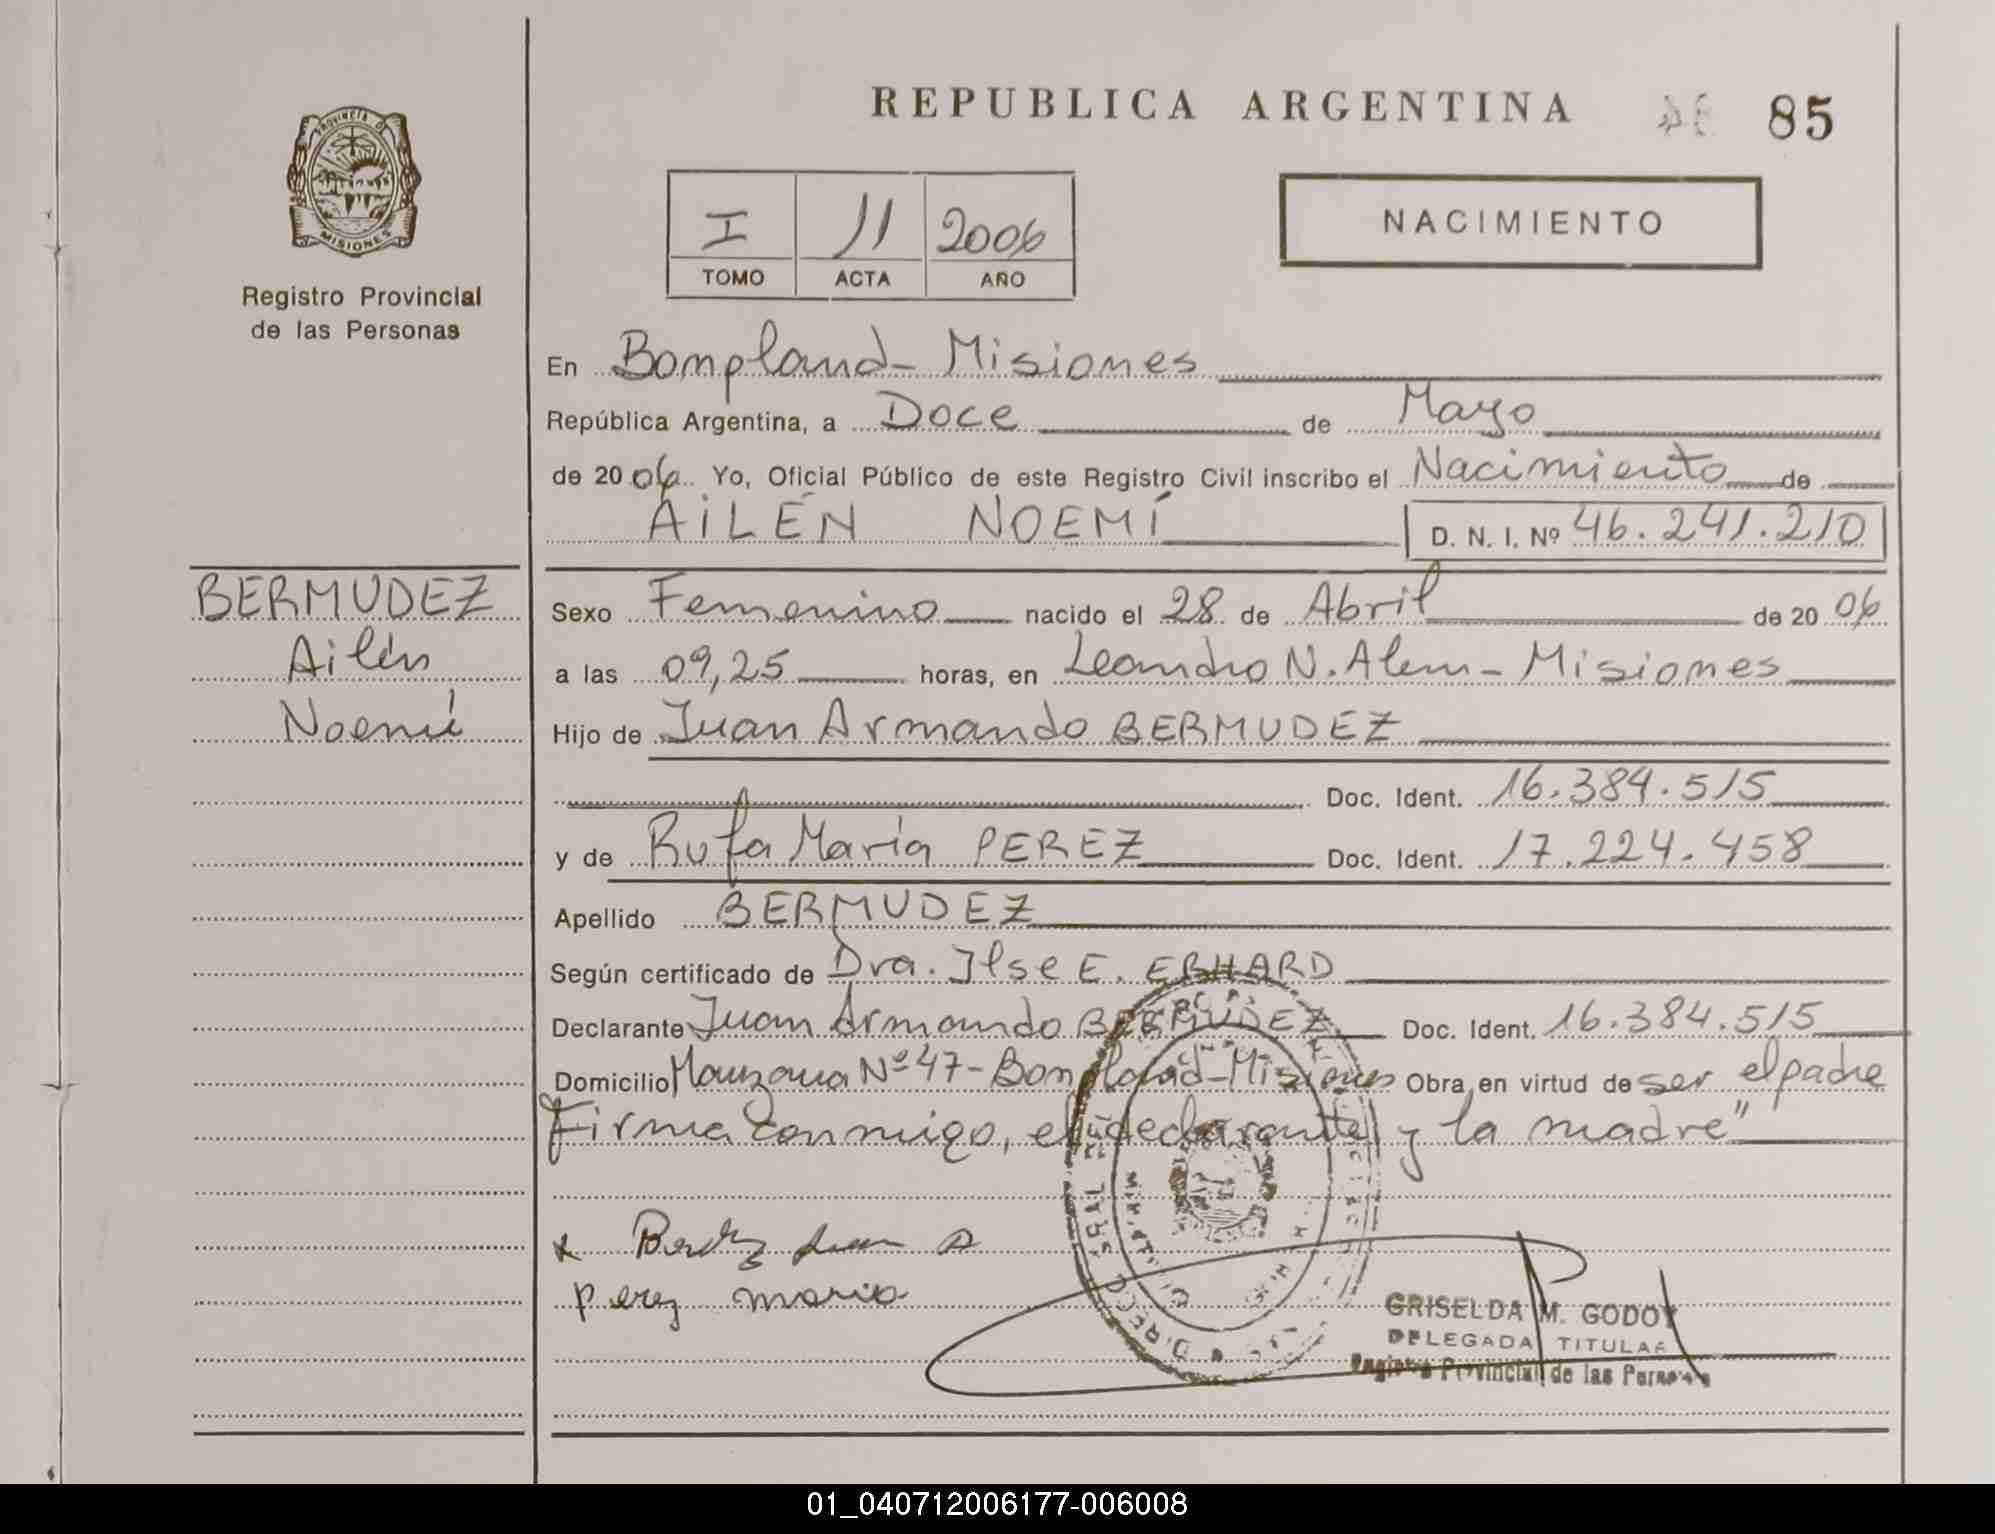 REPUBLICA ARGENTINA 85
PROVINCIA D
MISIONES
Registro Provincial
de las Personas
I 11 2006
TOMO ACTA AÑO
NACIMIENTO
En Bompland - Misiones
República Argentina, a Doce de Mayo
de 2006 Yo, Oficial Público de este Registro Civil inscribo el Nacimiento de
AILÉN NOEMÍ D. N. I. Nº 46.241.210
BERMUDEZ
Ailén
Noemí
Sexo Femenino nacido el 28 de Abril de 2006
a las 09,25 horas, en Leandro N. Alem - Misiones
Hijo de Juan Armando BERMUDEZ
Doc. Ident. 16.384.515
y de Rufa María PEREZ Doc. Ident. 17.224.458
Apellido BERMUDEZ
Según certificado de Dra. Ilse E. EBHARD
Declarante Juan Armando BERMUDEZ Doc. Ident. 16.384.515
Domicilio Manzana Nº 47 - Bompland - Misiones Obra en virtud de ser el padre
Firma conmigo, el declarante y la madre"
Juan A
Perez Maria
GRISELDA M. GODOY
DELEGADA TITULAR
Registro Provincial de las Personas
01_040712006177-006008